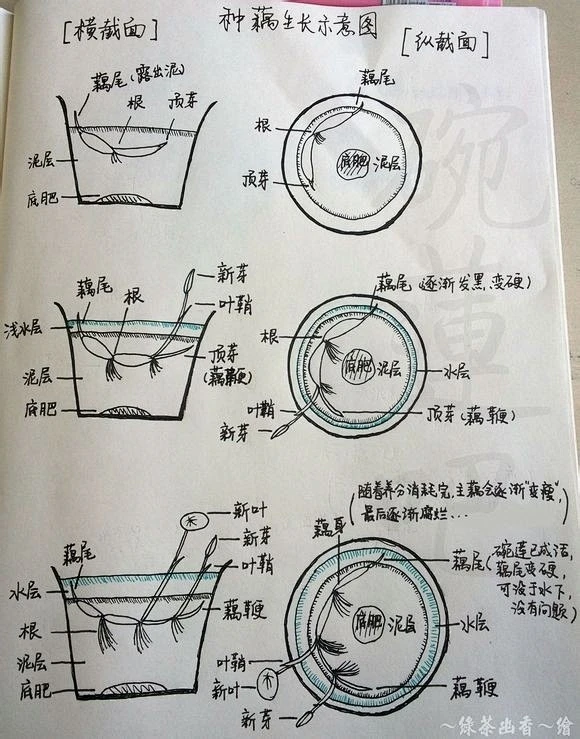 种藕生长示意图
[横截面]
[纵截面]
藕尾(露出泥)
根
顶芽
泥层
底肥
藕尾
根
顶芽
底肥
泥层
新芽
叶鞘
藕尾
根
浅水层
泥层
底肥
顶芽
(藕鞭)
藕尾(逐渐发黑、变硬)
根
底肥
泥层
水层
叶鞘
新芽
顶芽(藕鞭)
新叶
新芽
叶鞘
藕尾
水层
藕鞭
根
泥层
底肥
(随着养分消耗完,主藕会逐渐"变瘦",
最后逐渐腐烂...)
藕身
藕尾(碗莲已成活,
藕尾变硬,
可没于水下,
没有问题)
底肥
泥层
水层
叶鞘
新叶
新芽
藕鞭
～绿茶幽香～绘